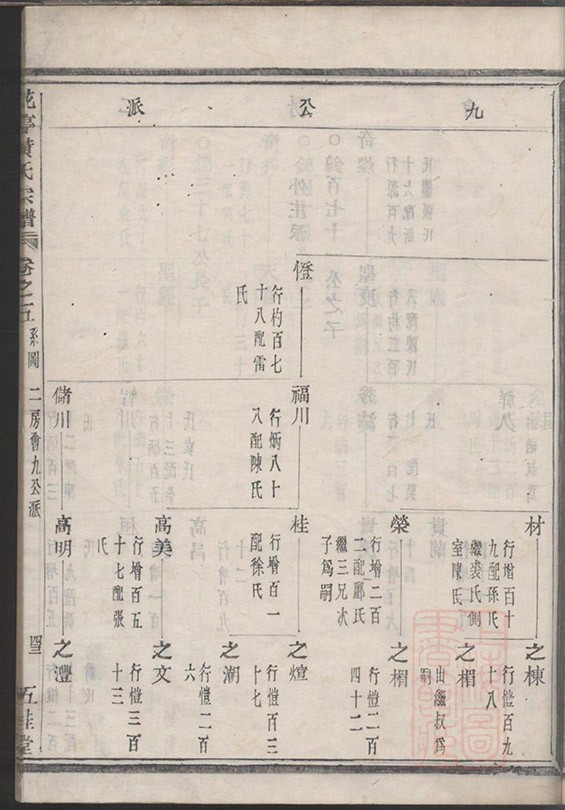 九公派
材
行增百十
九配孫氏
繼裘氏側
室陳氏
之棟
行愷百九
十八
之楣
出繼叔爲
嗣
榮
行增二百
二配酈氏
繼三兄次
子爲嗣
之楣
行愷二百
四十二
燈
行杓百七
十八配雷
氏
福川
行炳八十
八配陳氏
桂
行增百一
配徐氏
之煊
行愷百三
十七
之湖
行愷二百
六
高美
行增百五
十七配張
氏
之文
行愷三百
十三
儲川
高明
之灃
花亭黃氏宗譜
卷之五
系圖
二房會九公派
五桂堂